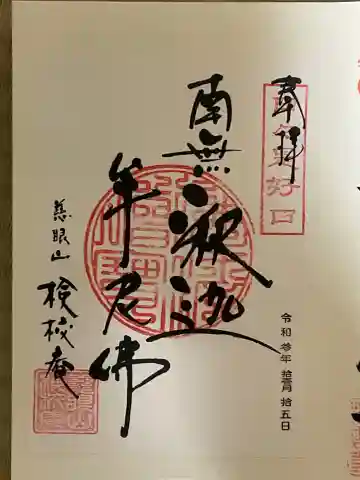 奉拝
南無釈迦
牟尼佛
慈眼山
検校庵
令和参年 拾壹月 拾五日